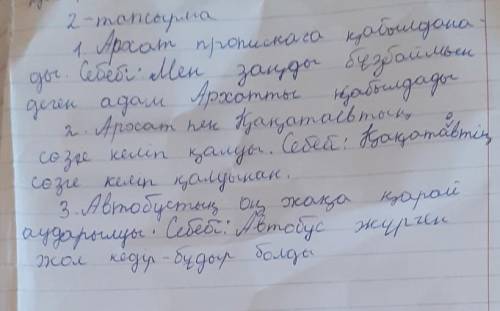 2-тапсырма
1. Архат прописказа қабылдана-
ды. Себебі: Мен заңды бұзбаймын
деген адам Архатты қабылдады
2. Архат пен Қақатаевтың
сөзге келіп қалды. Себебі: Қақатавтің
сөзге келіп қалдынан.
3. Автобустың оң жақа қарай
аударылуы. Себебі: Автобус жүрген
жол кедір-бұдыр болды